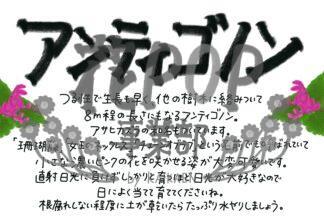 アンティゴノン
つる性で生長も早く、他の樹木に絡みついて
8m程の長さにもなるアンティゴノン。
アサヒカズラの和名もついています。
「珊瑚」「女王のネックレス」「チェーンオブラブ」という名前でも呼ばれていて
小さな濃いピンクの花を咲かせる姿が大変可愛いです。
直射日光に負けずしっかりと育つほど日光が大好きなので
日によく当てて育ててくださいね。
根腐れしない程度に土が乾いたらたっぷり水やりしましょう。
花pop